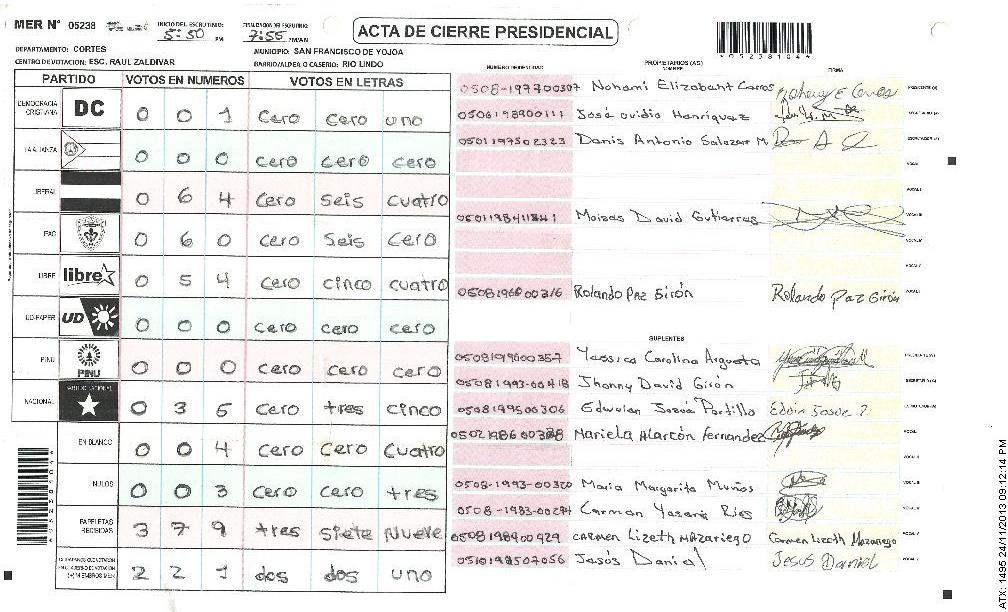 MER N° 05238
INICIO DEL ESCRUTINIO: 5:50 PM
FINALIZACION DEL ESCRUTINIO: 7:55 PM/AM
ACTA DE CIERRE PRESIDENCIAL
*05238104*
DEPARTAMENTO: CORTES
MUNICIPIO: SAN FRANCISCO DE YOJOA
CENTRO DE VOTACION: ESC. RAUL ZALDIVAR
BARRIO/ALDEA O CASERIO: RIO LINDO
PARTIDO VOTOS EN NUMEROS VOTOS EN LETRAS
DEMOCRACIA CRISTIANA DC 0 0 1 cero cero uno
LA ALIANZA 0 0 0 cero cero cero
LIBERAL 0 6 4 cero seis cuatro
PAC 0 6 0 cero seis cero
LIBRE libre 0 5 4 cero cinco cuatro
UD-FAPER UD 0 0 0 cero cero cero
PINU PINU 0 0 0 cero cero cero
NACIONAL PARTIDO NACIONAL 0 3 5 cero tres cinco
EN BLANCO 0 0 4 cero cero cuatro
NULOS 0 0 3 cero cero tres
PAPELETAS RECIBIDAS 3 7 9 tres siete nueve
2 2 1 dos dos uno
NUMERO DE IDENTIDAD
PROPIETARIOS (AS)
NOMBRE
FIRMA
0508-197700307 Nohami Elizabant Carros
0506198900111 José ovidio Henriquez
0501197502323 Danis Antonio Salazar M
Moises David Gutierras
0508196800316 Rolando Paz Girón Rolando Paz Girón
SUPLENTES
0508199600357 Yessica Carolina Argueta
05081993-00418 Jhonny David Girón
0508199500306 Josué Portillo
Mariela Alarcón Fernandez
0508-1993-00320 Maria Margarita Muños
Carman Yasani Rios
0508198900929 CARMEN Lizeth MAZARIEGO Carmen Lizeth Mazariego
0510198507056 Jesús Daniel Jesus Daniel
ATX: 1495 24/11/2013 09:12:14 PM